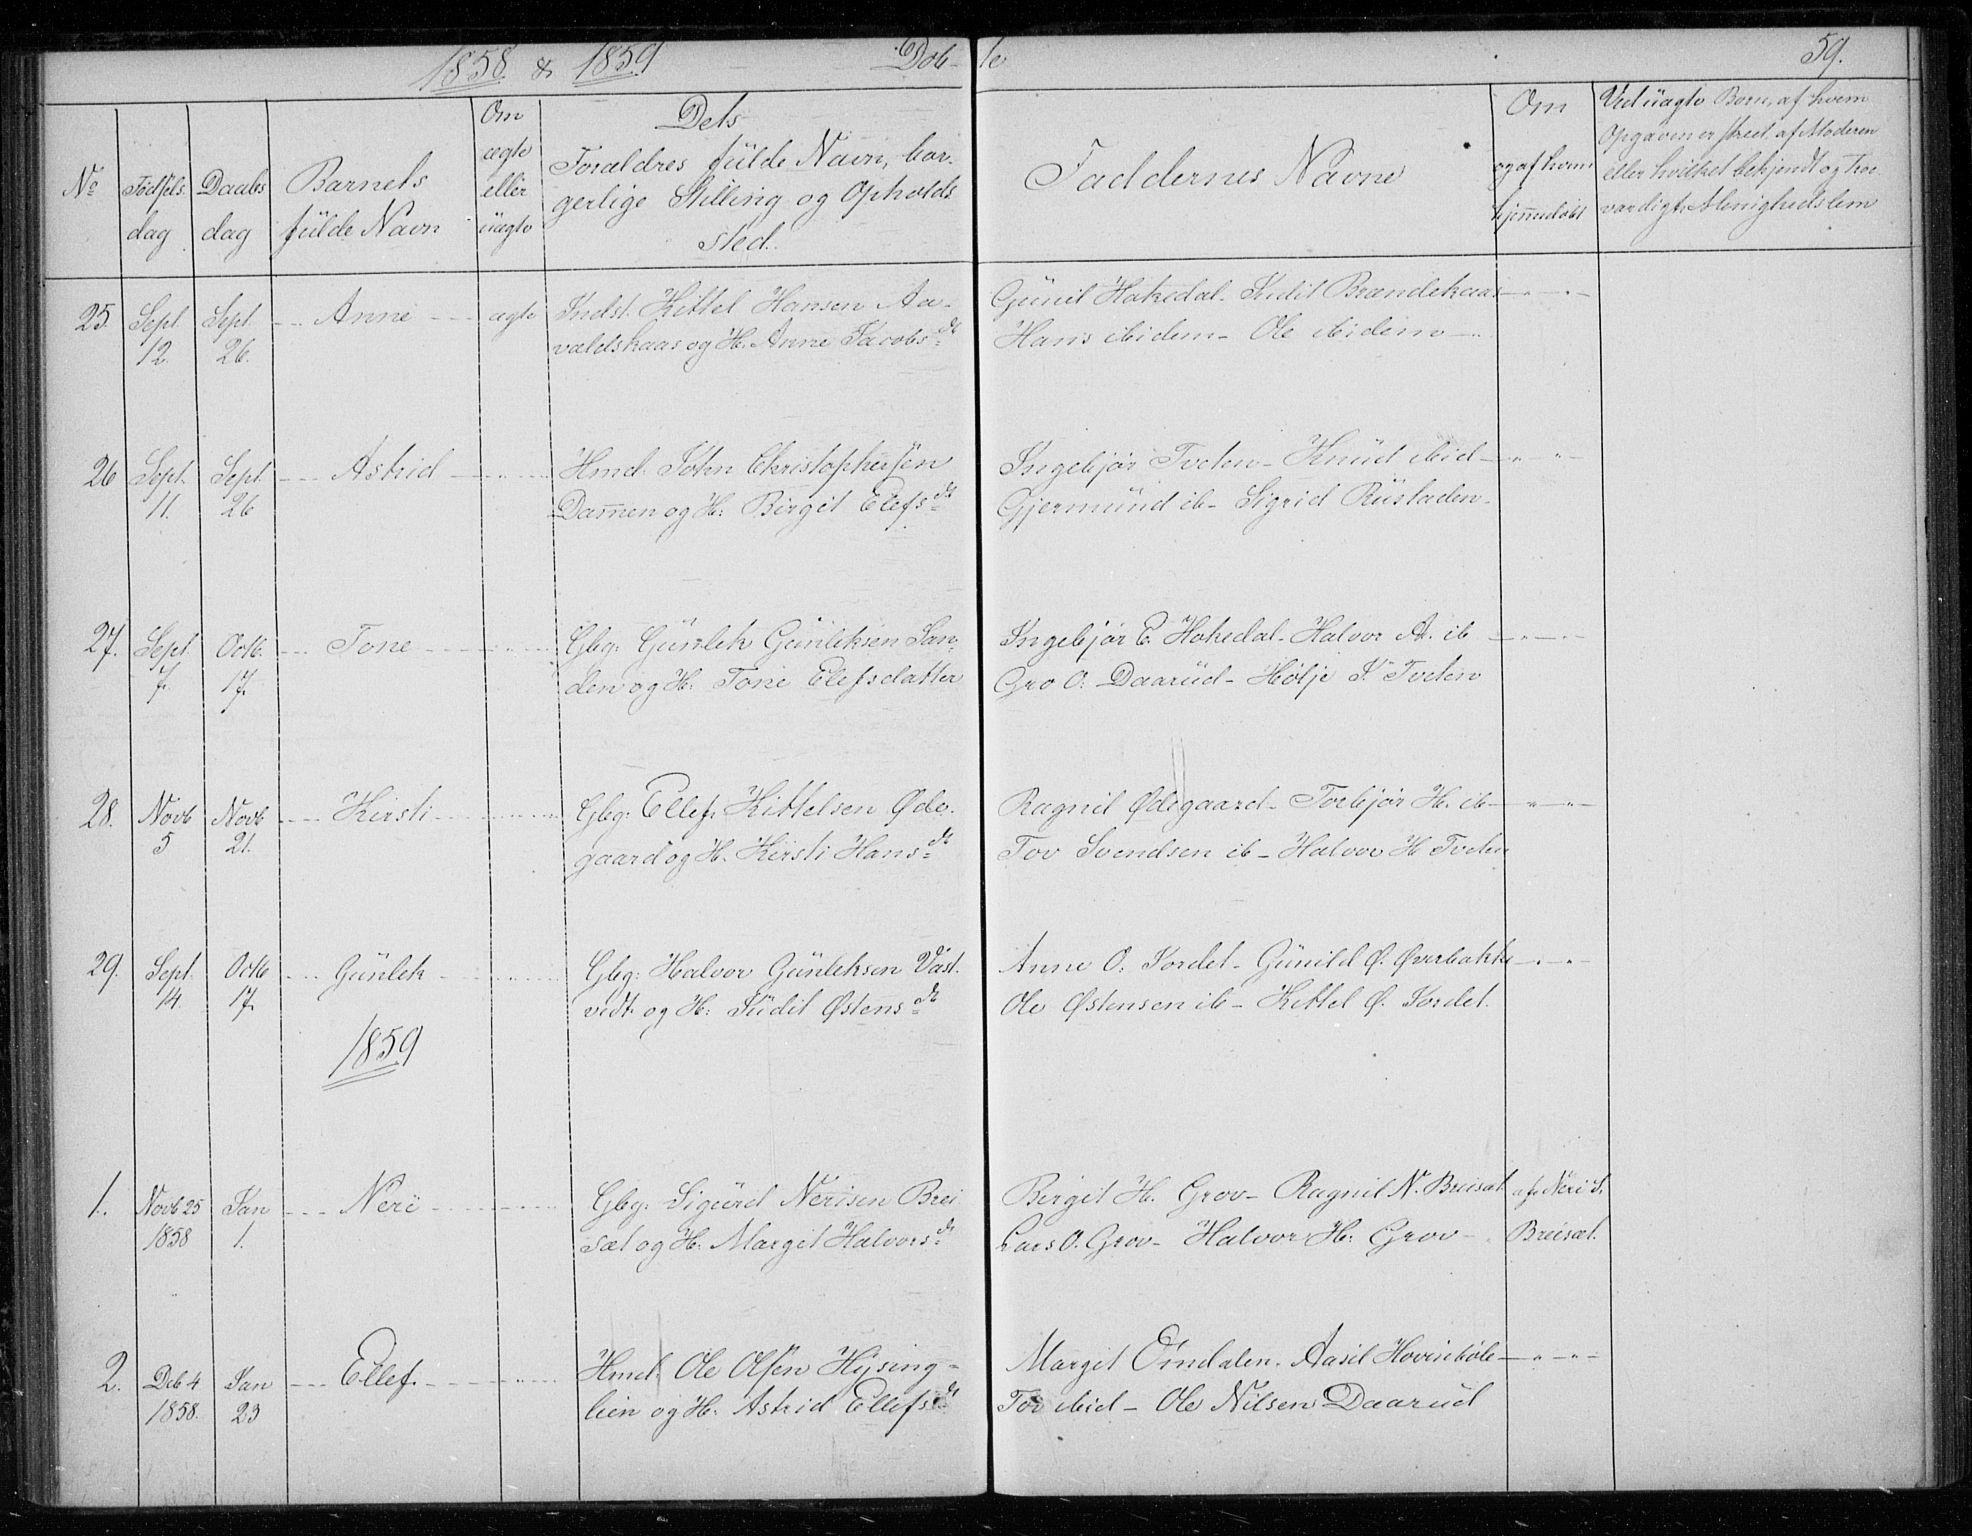 1858 & 1859 Døb-
te 59.
No
Fødsels
dag
Daabs
dag
Barnets
fulde Navn
Om
ægte
eller
uægte
Dets
Foraldres fülde Navn, bor-
gerlige Stilling og Opholds
sted.
Faddernes Navne
Om
og af hvem
hjemmedøbt
Ved üagte Børn, af hvem
Opgaven er skeet, af Moderen
eller hvilket bekjendt og troe
værdigt Menighedslem
25. Sept 12. Sept 26. Anne ægte Indst. Kittel Hansen Aa-
valdskaas og H. Anne Jacobsdt
Günil Hakedal - Judit Brændekaas
Hans ibidem - Ole ibidem
26 Sept. 11. Sept 26 Astrid Hmd. John Christophersen
Dammen og H: Birgit Elefsdt
Ingebjør Tveten - Knüd ibid
Gjermünd ib - Sigrid Rüstaden
27. Sept 7. Octb. 17. Tone Gbg: Günlek Günleksen San-
den og H: Tone Elefsdatter
Ingebjør E. Hakedal - Halvor A. ib
Gro O. Daarüd - Hölje K. Tveten
28. Novb 5 Novb 21. Kirsti Gbg: Ellef Kittelsen Øde-
gaard og H. Kirsti Hansdt
Ragnil Ødegaard - Torbjør H. ib
Tov Svendsen ib - Halvor H Tveten
29. Sept. 14. Octb 17. Günlek Gbg: Halvor Günleksen Væst-
vedt og H: Jüdit Østensdt
Anne O. Jordet - Günild Ø. Øverbakke
Ole Østensen ib - Kittel Ø. Jordet.
1859
1. Novb 25 1858 Jan 1. Neri Gbg: Sigürd Nerisen Brei
sæt og H: Margit Halvorsdt
Birgit H. Grov - Ragnil N. Breisæt
Lars O. Grov - Halvor H: Grov
af Neri S.
Breisæt.
2. Deb 4 1858. Jan 23 Ellef. Hmd. Ole Olsen Hysing-
lien og H: Astrid Ellefsdt
Margit Omdalen. Aasil Hovinbøle
Tor ibid - Ole Nilsen Daarüd